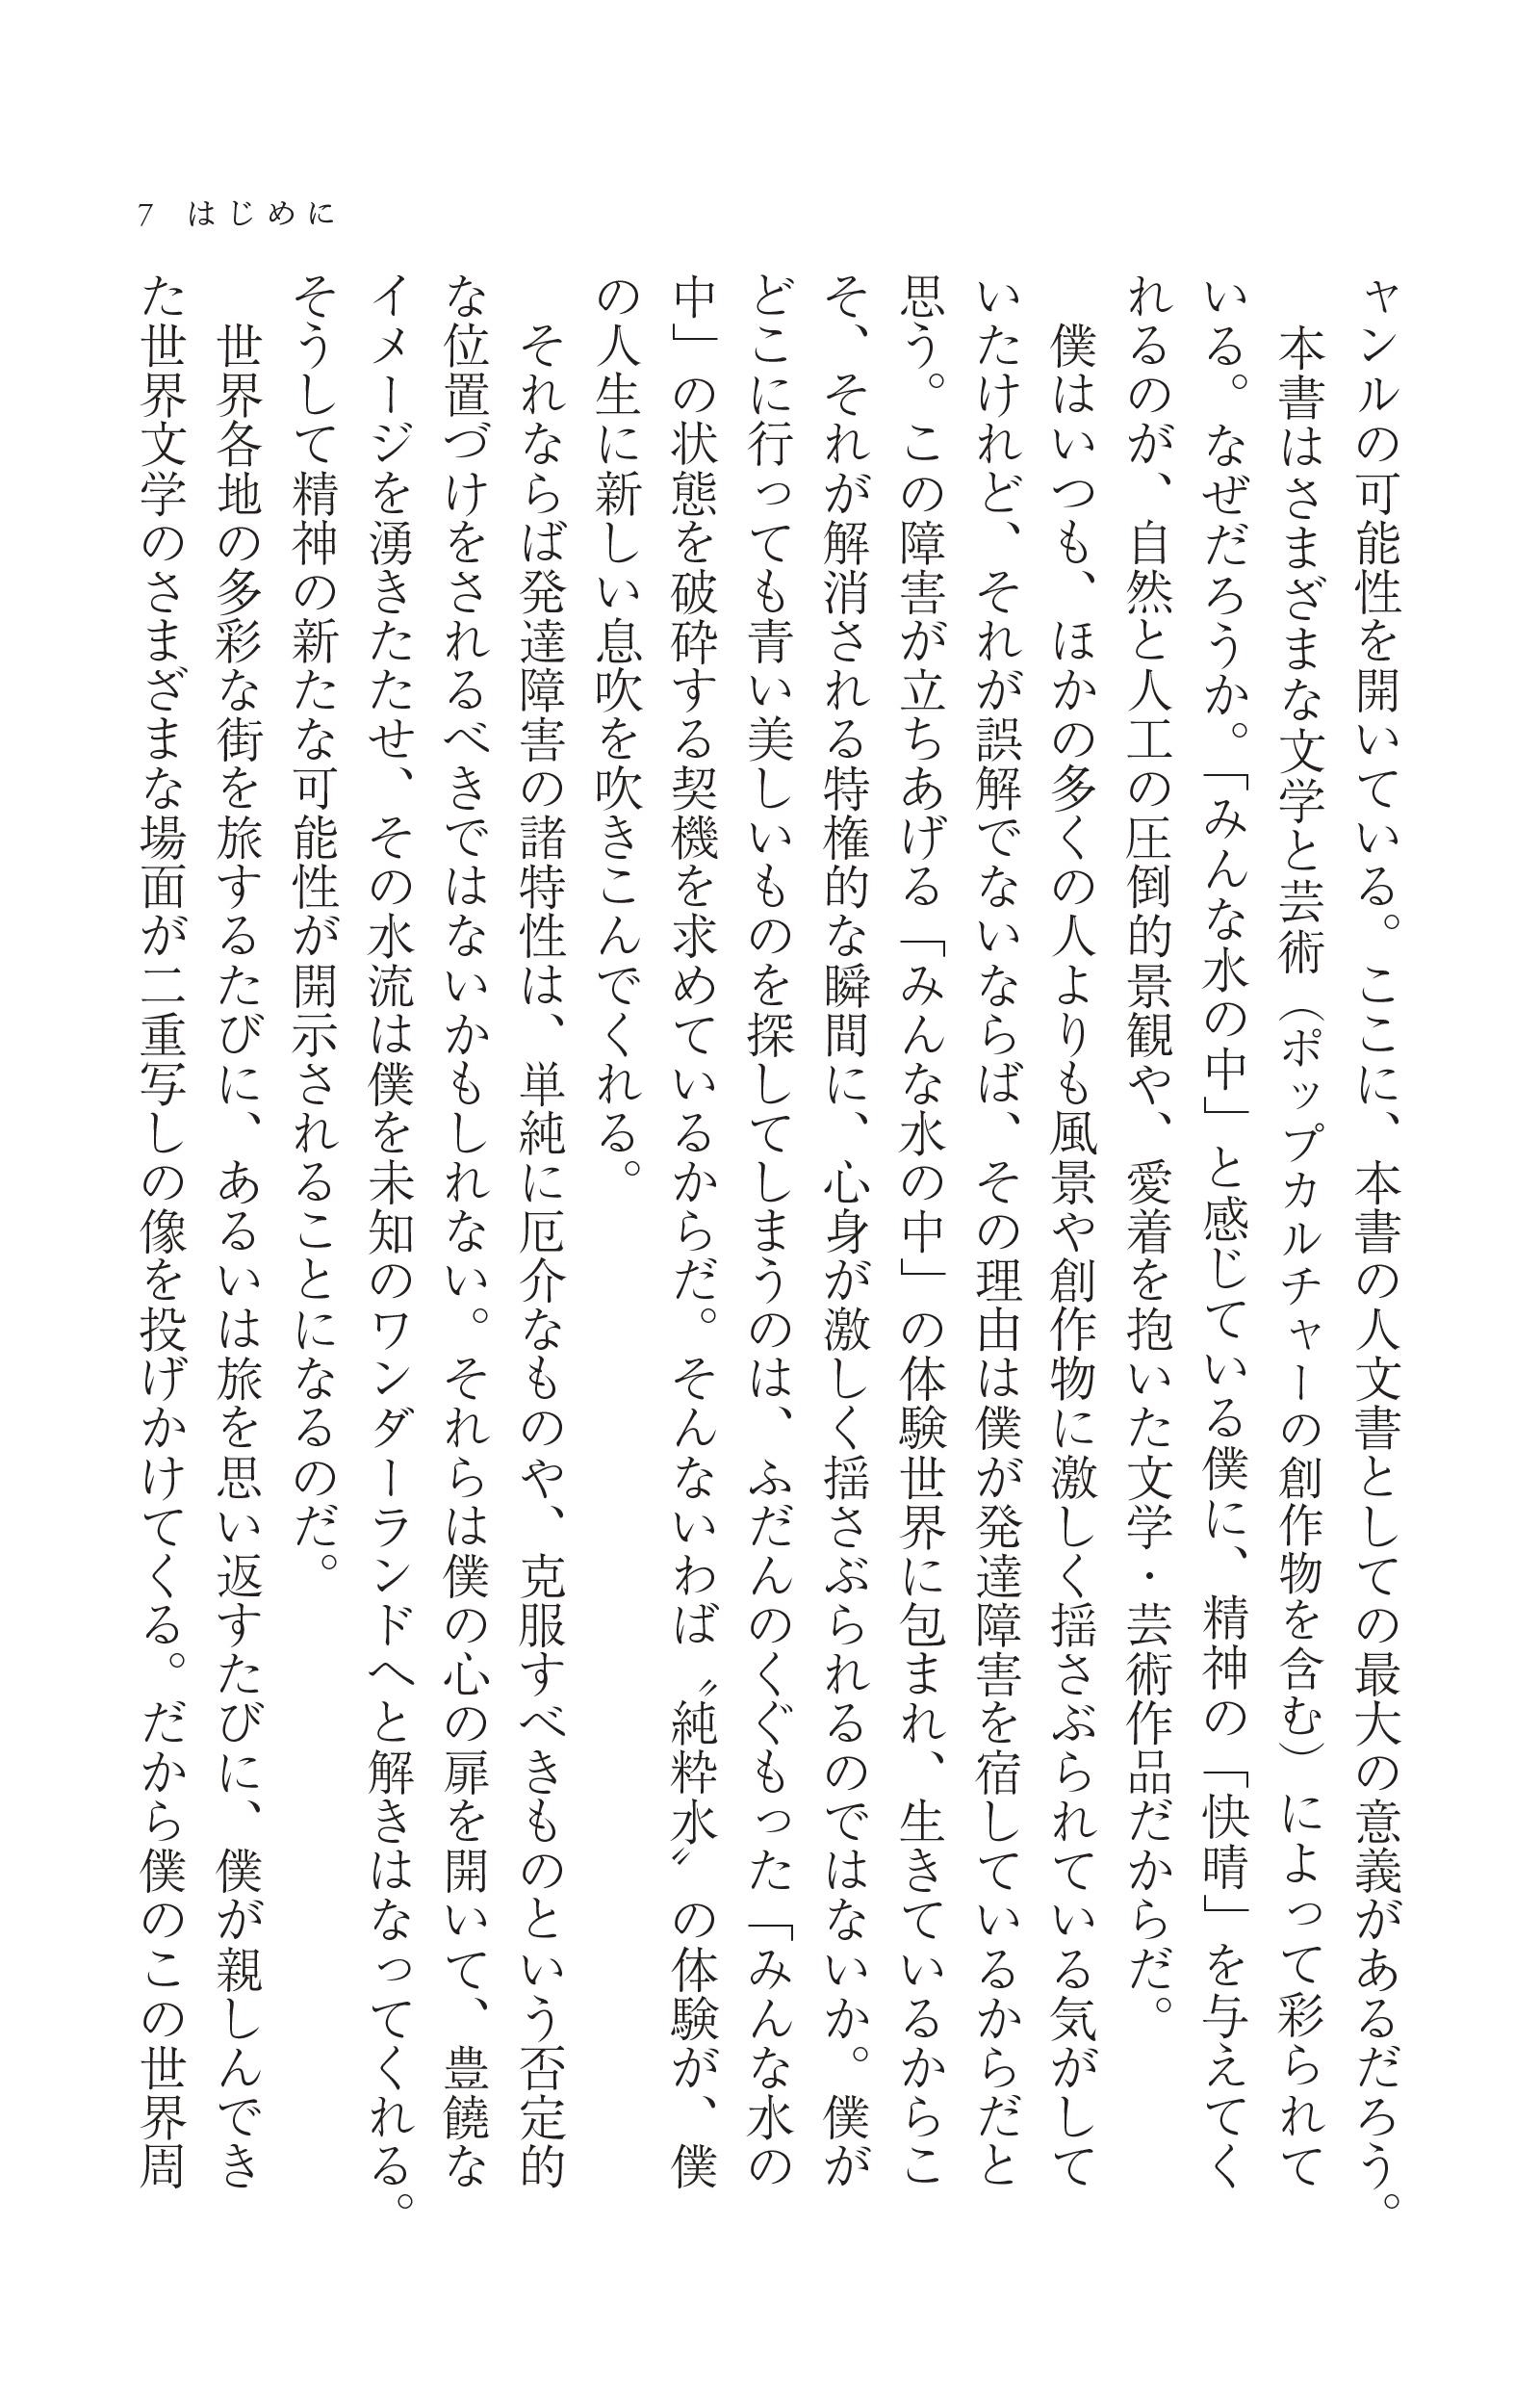 7 はじめに
ャンルの可能性を開いている。ここに、本書の人文書としての最大の意義があるだろう。
　本書はさまざまな文学と芸術（ポップカルチャーの創作物を含む）によって彩られて
いる。なぜだろうか。「みんな水の中」と感じている僕に、精神の「快晴」を与えてく
れるのが、自然と人工の圧倒的景観や、愛着を抱いた文学・芸術作品だからだ。
　僕はいつも、ほかの多くの人よりも風景や創作物に激しく揺さぶられている気がして
いたけれど、それが誤解でないならば、その理由は僕が発達障害を宿しているからだと
思う。この障害が立ちあげる「みんな水の中」の体験世界に包まれ、生きているからこ
そ、それが解消される特権的な瞬間に、心身が激しく揺さぶられるのではないか。僕が
どこに行っても青い美しいものを探してしまうのは、ふだんのくぐもった「みんな水の
中」の状態を破砕する契機を求めているからだ。そんないわば〝純粋水〟の体験が、僕
の人生に新しい息吹を吹きこんでくれる。
　それならば発達障害の諸特性は、単純に厄介なものや、克服すべきものという否定的
な位置づけをされるべきではないかもしれない。それらは僕の心の扉を開いて、豊饒な
イメージを湧きたたせ、その水流は僕を未知のワンダーランドへと解きはなってくれる。
そうして精神の新たな可能性が開示されることになるのだ。
　世界各地の多彩な街を旅するたびに、あるいは旅を思い返すたびに、僕が親しんでき
た世界文学のさまざまな場面が二重写しの像を投げかけてくる。だから僕のこの世界周